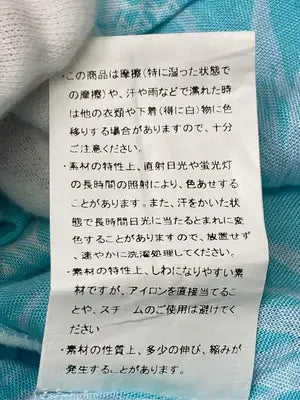 ・この商品は摩擦(特に湿った状態で
の摩擦)や、汗や雨などで濡れた時
は他の衣類や下着(得に白)物に色
移りする場合がありますので、十分
ご注意ください。
・素材の特性上、直射日光や蛍光灯
の長時間の照射により、色あせする
ことがあります。また、汗をかいた状
態で長時間日光に当たるとまれに変
色することがありますので、放置せず、
速やかに洗濯処理してください。
・素材の特性上、しわになりやすい素
材ですが、アイロンを直接当てるこ
とや、スチームのご使用は避けてく
ださい
・素材の性質上、多少の伸び、縮みが
発生することがあります。